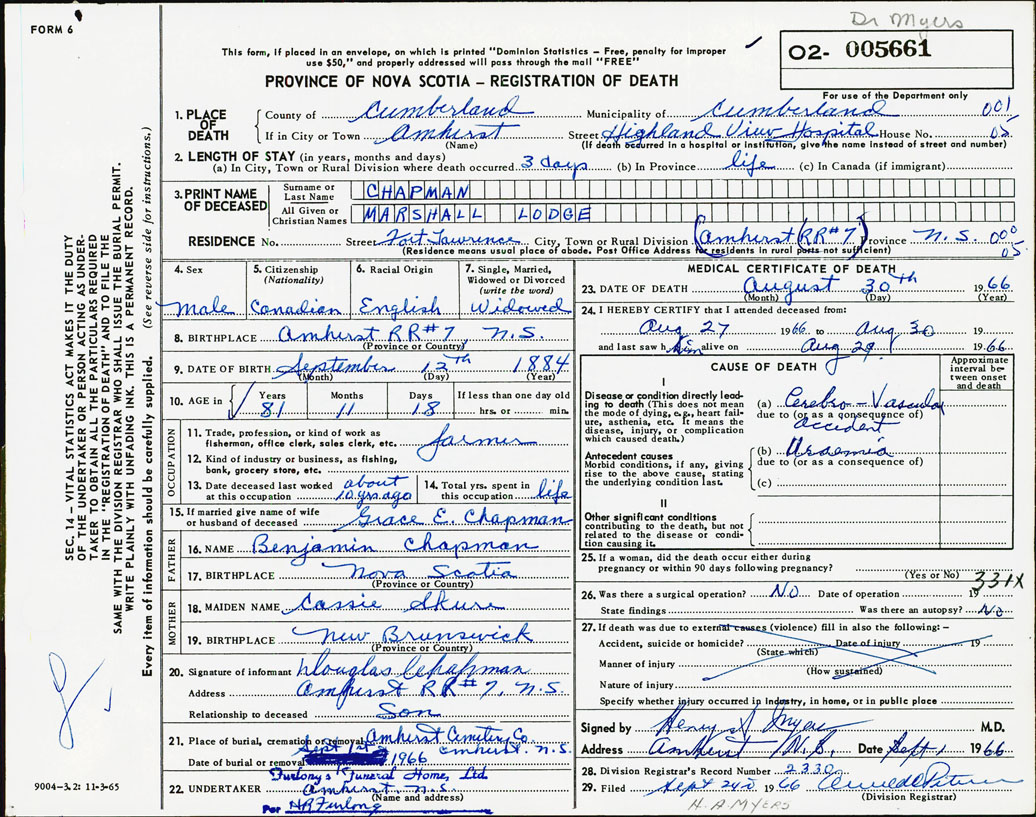 Dr Myers
FORM 6
This form, if placed in an envelope, on which is printed "Dominion Statistics – Free, penalty for improper
use $50," and properly addressed will pass through the mail "FREE"
PROVINCE OF NOVA SCOTIA – REGISTRATION OF DEATH
02- 005661
For use of the Department only
SEC. 14 – VITAL STATISTICS ACT MAKES IT THE DUTY
OF THE UNDERTAKER OR PERSON ACTING AS UNDER-
TAKER TO OBTAIN ALL THE PARTICULARS REQUIRED
IN THE "REGISTRATION OF DEATH" AND TO FILE THE
SAME WITH THE DIVISION REGISTRAR WHO SHALL ISSUE THE BURIAL PERMIT.
WRITE PLAINLY WITH UNFADING INK. THIS IS A PERMANENT RECORD.
Every item of information should be carefully supplied. (See reverse side for instructions.)
1. PLACE OF DEATH County of Cumberland Municipality of Cumberland 001
If in City or Town Amherst Street Highland View Hospital House No. 05
(Name) (If death occurred in a hospital or institution, give the name instead of street and number)
2. LENGTH OF STAY (in years, months and days)
(a) In City, Town or Rural Division where death occurred 3 days (b) In Province life (c) In Canada (if immigrant)
3. PRINT NAME OF DECEASED Surname or Last Name CHAPMAN
All Given or Christian Names MARSHALL LODGE
RESIDENCE No. Street Fort Lawrence City, Town or Rural Division (Amherst (RR#7) Province N.S. 000
(Residence means usual place of abode. Post Office Address for residents in rural parts not sufficient) 05
4. Sex Male
5. Citizenship (Nationality) Canadian
6. Racial Origin English
7. Single, Married, Widowed or Divorced (write the word) Widowed
8. BIRTHPLACE Amherst RR#7 N.S.
(Province or Country)
9. DATE OF BIRTH September 12th 1884
(Month) (Day) (Year)
10. AGE in Years 81 Months 11 Days 18 If less than one day old hrs. or min.
OCCUPATION
11. Trade, profession, or kind of work as fisherman, office clerk, sales clerk, etc. farmer
12. Kind of industry or business, as fishing, bank, grocery store, etc.
13. Date deceased last worked at this occupation about 10 yrs ago
14. Total yrs. spent in this occupation life
15. If married give name of wife or husband of deceased Grace E. Chapman
FATHER
16. NAME Benjamin Chapman
17. BIRTHPLACE Nova Scotia
(Province or Country)
MOTHER
18. MAIDEN NAME Cassie
19. BIRTHPLACE New Brunswick
(Province or Country)
20. Signature of informant Douglas Chapman
Address Amherst RR#7, N.S.
Relationship to deceased Son
21. Place of burial, cremation or removal Amherst Cemetery Co.
Amherst. N.S.
Date of burial or removal Sept 1st 1966
22. UNDERTAKER Furlong's Funeral Home, Ltd.
Amherst N.S.
(Name and address)
Per HR Furlong
9004–3.2: 11-3-65
MEDICAL CERTIFICATE OF DEATH
23. DATE OF DEATH August 30th 1966
(Month) (Day) (Year)
24. I HEREBY CERTIFY that I attended deceased from:
Aug 27 1966 to Aug 30 19
and last saw him alive on Aug 29 1966
CAUSE OF DEATH
Approximate interval between onset and death
I
Disease or condition directly leading to death (This does not mean the mode of dying, e.g., heart failure, asthenia, etc. It means the disease, injury, or complication which caused death.)
(a) Cerebro-Vascular
due to (or as a consequence of)
accident
Antecedent causes
Morbid conditions, if any, giving rise to the above cause, stating the underlying condition last.
(b) Uraemia
due to (or as a consequence of)
(c)
II
Other significant conditions
contributing to the death, but not related to the disease or condition causing it.
25. If a woman, did the death occur either during
pregnancy or within 90 days following pregnancy?
(Yes or No) 331X
26. Was there a surgical operation? No Date of operation 19
State findings Was there an autopsy? No
27. If death was due to external causes (violence) fill in also the following:–
Accident, suicide or homicide? Date of injury 19
(State which)
Manner of injury
(How sustained)
Nature of injury
Specify whether injury occurred in industry, in home, or in public place
Signed by Henry A Myers M.D.
Address Amherst N.S. Date Sept 1 1966
28. Division Registrar's Record Number 2330
29. Filed Sept 2nd 1966
(Division Registrar)
H. A. MYERS